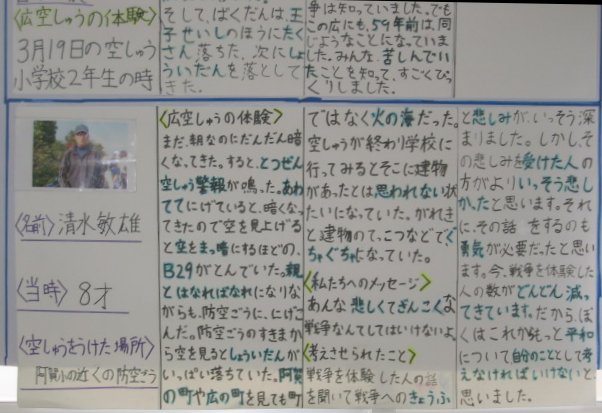 〈広空しゅうの体験〉
3月19日の空しゅう
小学校2年生の時
そして、ばくだんは、王
子せいしのほうにたく
さん落ちた。次にしょ
ういだんを落として
きた。
争は知っていました。でも
この広にも、59年前は、同
じようなことになっていま
した。みんな、苦しんでい
たことを知って、すごくびっ
くりしました。
〈名前〉清水敏雄
〈当時〉8才
〈空しゅうをうけた場所〉
阿賀小の近くの防空ごう
〈広空しゅうの体験〉
まだ、朝なのにだんだん暗
くなってきた。すると、とつぜん
空しゅう警報が鳴った。あわ
ててにげていると、暗くなっ
てきたので空を見上げる
と空をま、暗にするほどの、
B29がとんでいた。親
とはなればなれになりな
がらも、防空ごうに、にげこ
んだ。防空ごうのすきまか
ら空を見るとしょういだんが
いっぱい落ちていた。阿賀
の町や広の町を見ても町
ではなく火の海だった。
空しゅうが終わり学校に
行ってみるとそこに建物
があったとは思われない状
たいになっていた。がれき
と建物ので、こつなどでぐ
ちゃぐちゃになっていた。
〈私たちへのメッセージ〉
あんな悲しくてざんこくな
戦争なんてしてはいけないよ。
〈考えさせられたこと〉
戦争を体験した人の話
を聞いて戦争へのきょうふ
と悲しみが、いっそう深
まりました。しかし、そ
の悲しみを受けた人の
方がよりいっそう悲し
かったと思います。それ
に、その話をするのも
勇気が必要だったと思い
ます。今、戦争を体験した
人の数がどんどん減っ
てきています。だから、ぼ
くはこれからもっと平和
について自分のこととして考
えなければいけないと
思いました。